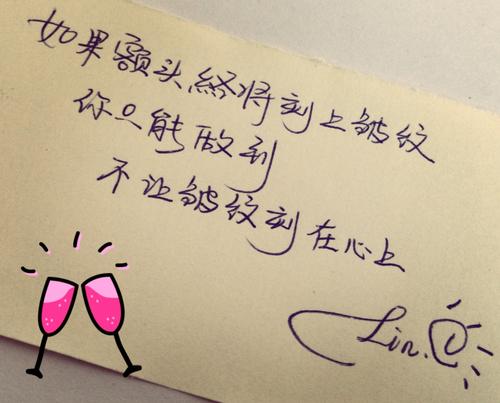 如果额头终将刻上皱纹
你只能做到
不让皱纹刻在心上
Lin.